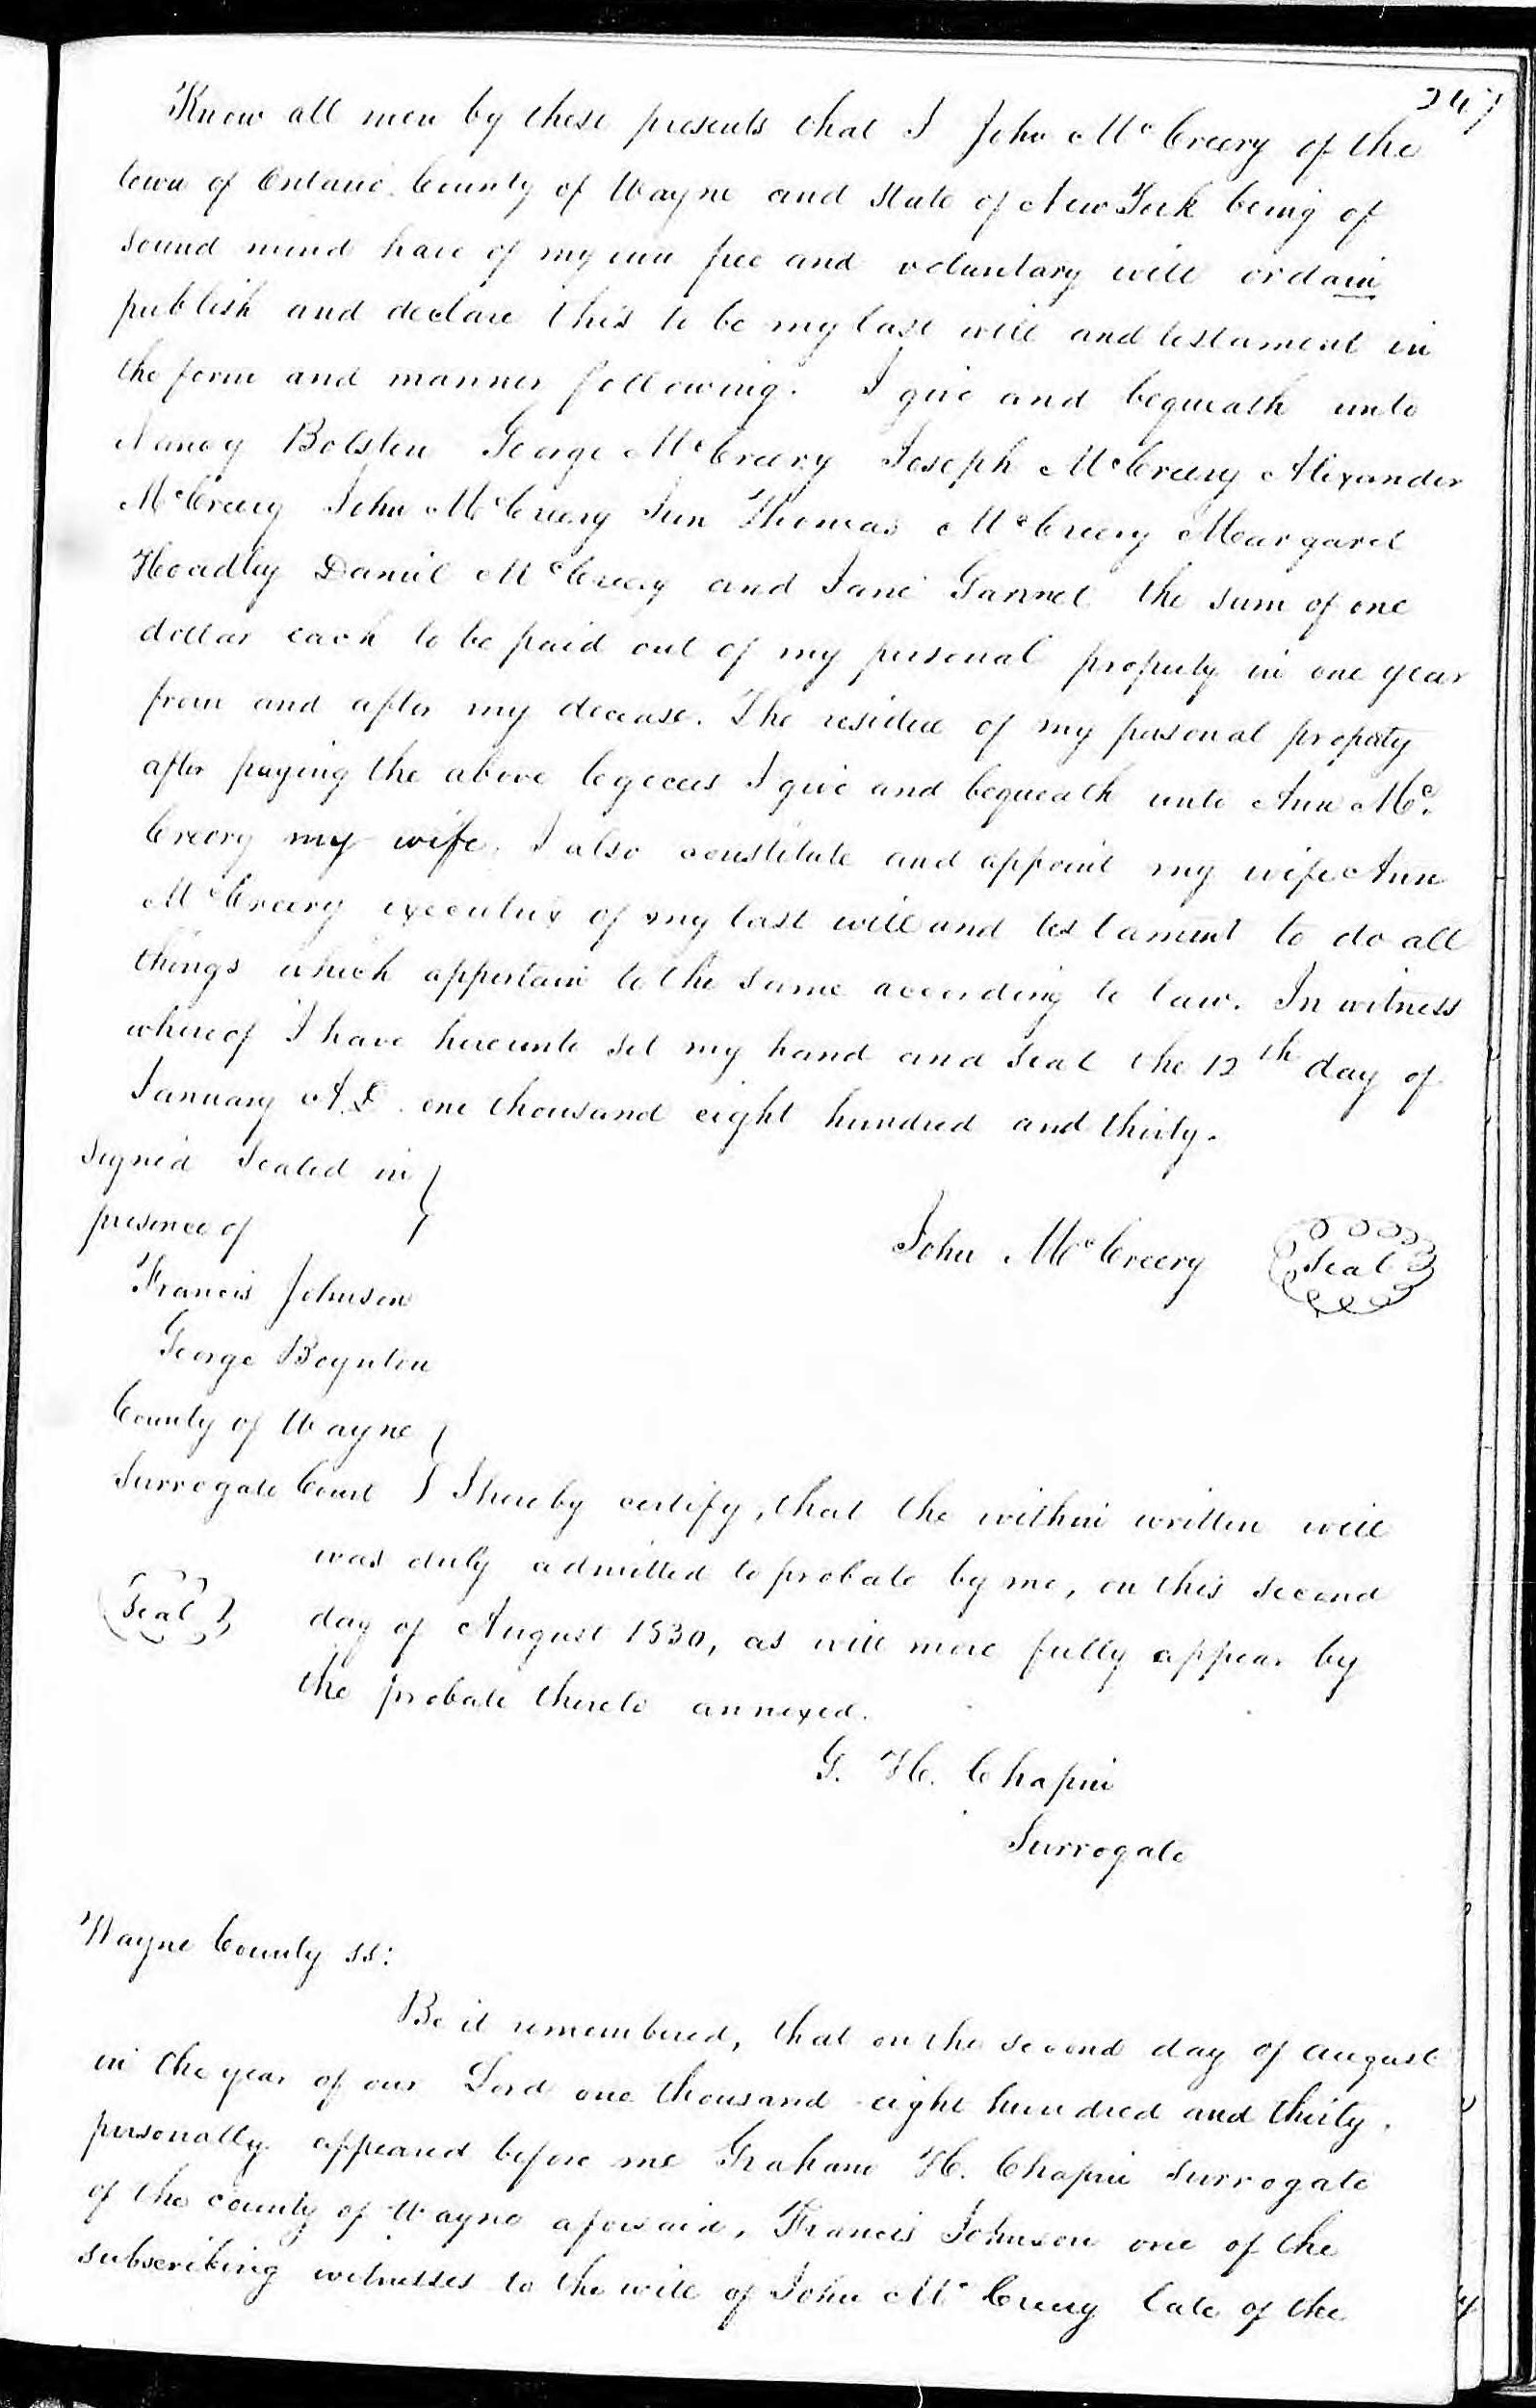 247
Know all men by these presents that I John Mc Creery of the
town of Ontario County of Wayne and State of New York being of
sound mind have of my own free and voluntary will ordain
publish and declare this to be my last will and testament in
the form and manner following. I give and bequeath unto
Nancy Bolsten George McCreery Joseph McCreery Alexander
McCreery John McCreery Jun Thomas McCreery Margaret
Hoadley Daniel McCreery and Jane Gannet the sum of one
dollar each to be paid out of my personal property in one year
from and after my decease. The residue of my personal property
after paying the above legecees I give and bequeath unto Ann Mc.
Creery my wife. I also constitute and appoint my wife Ann
McCreery executrix of my last will and testament to do all
things which appertain to the same according to law. In witness
whereof I have hereunto set my hand and seal the 12th day of
January A.D. one thousand eight hundred and thirty.
signed sealed in
presence of
John McCreery Seal
Francis Johnson
George Boynton
County of Wayne
Surrogate Court I hereby certify, that the within written will
was duly admitted to probate by me, on this second
Seal day of August 1830, as will more fully appear by
the probate thereto annexed.
G. H. Chapin
Surrogate
Wayne County ss:
Be it remembered, that on the second day of august
in the year of our Lord one thousand eight hundred and thirty,
personally appeared before me Graham H. Chapin surrogate
of the county of Wayne aforesaid, Francis Johnson one of the
subscribing witnesses to the will of John McCreery late of the